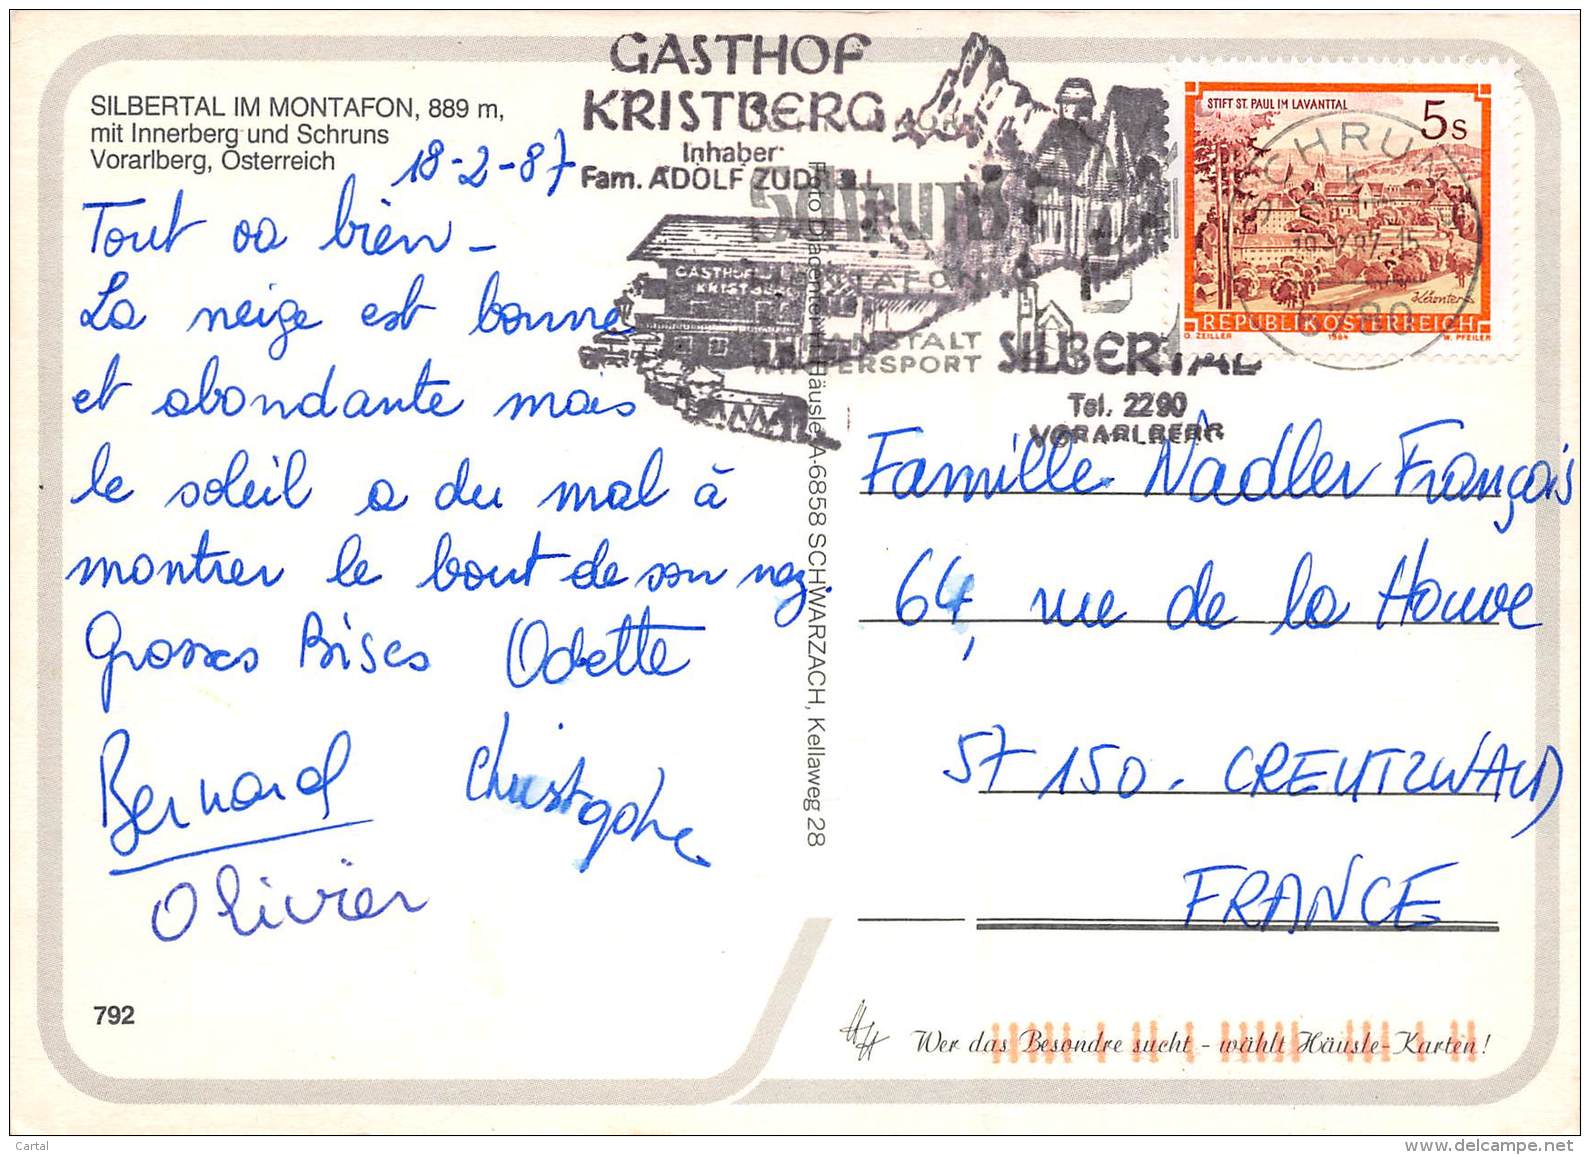 SILBERTAL IM MONTAFON, 889 m,
mit Innerberg und Schruns
Vorarlberg, Österreich
18-2-87
Tout va bien -
La neige est bonne
et abondante mais
le soleil a du mal à
montrer le bout de son nez.
Grosses Bises Odette
Bernard Christophe
Olivier
792
GASTHOF
KRISTBERG
Inhaber
Fam. ADOLF
GASTHOF
KRISTBERG
Schruns
WINTERSPORT
SILBERTAL
Tel. 2290
VORARLBERG
Häusle, A-6858 SCHWARZACH, Kellaweg 28
STIFT ST. PAUL IM LAVANTTAL
5s
Kärnten
REPUBLIK ÖSTERREICH
O. ZEILLER 1984 W. PFEILER
SCHRUNS
6780
Famille Nadler François
64, rue de la Houve
57150 - CREUTZWALD
FRANCE
Wer das Besondre sucht - wählt Häusle-Karten!
Cartal
www.delcampe.net